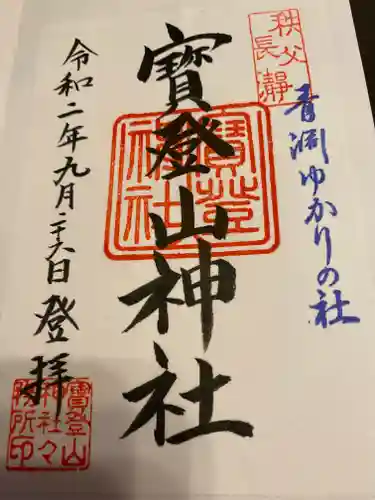 秩父
長瀞
青淵ゆかりの社
寶登山神社
寶登山神社
令和二年九月二十六日登拝
寶登山
神社々
務所印